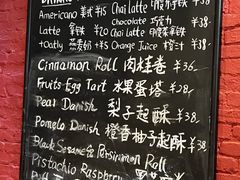 Americano 美式 ¥15 Chai latte ¥38
Chocolate 巧克力 ¥38
Latte 拿铁 ¥20 Chai latte ¥38
+Oatly 燕麦奶 +¥5 Orange Juice 橙汁 ¥38
Cinnamon Roll 肉桂卷 ¥36
Fruits Egg Tart 水果蛋塔 ¥38
Pear Danish 梨子起酥 ¥38
Pomelo Danish 橙香柚子起酥 ¥38
Black Sesame & Persimmon Roll
Pistachio Raspberry